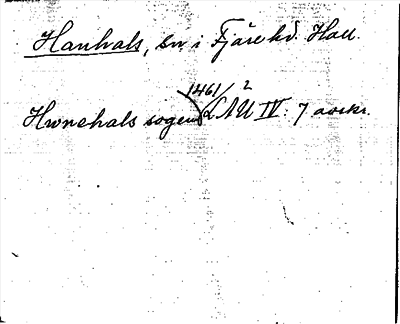 Hanhals, sn i Fjäre hd. Hall.
1461/2
Hwnehals sogen LÄU IV: 7 avskr.